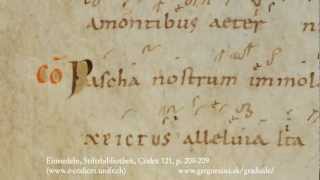 amontibus aeter n
CÕ Pascha nostrum immola
xpictus alleluia Ita
Einsiedeln, Stiftsbibliothek, Codex 121, p. 208-209
(www.e-codices.unifr.ch) www.gregoriana.sk/graduale/